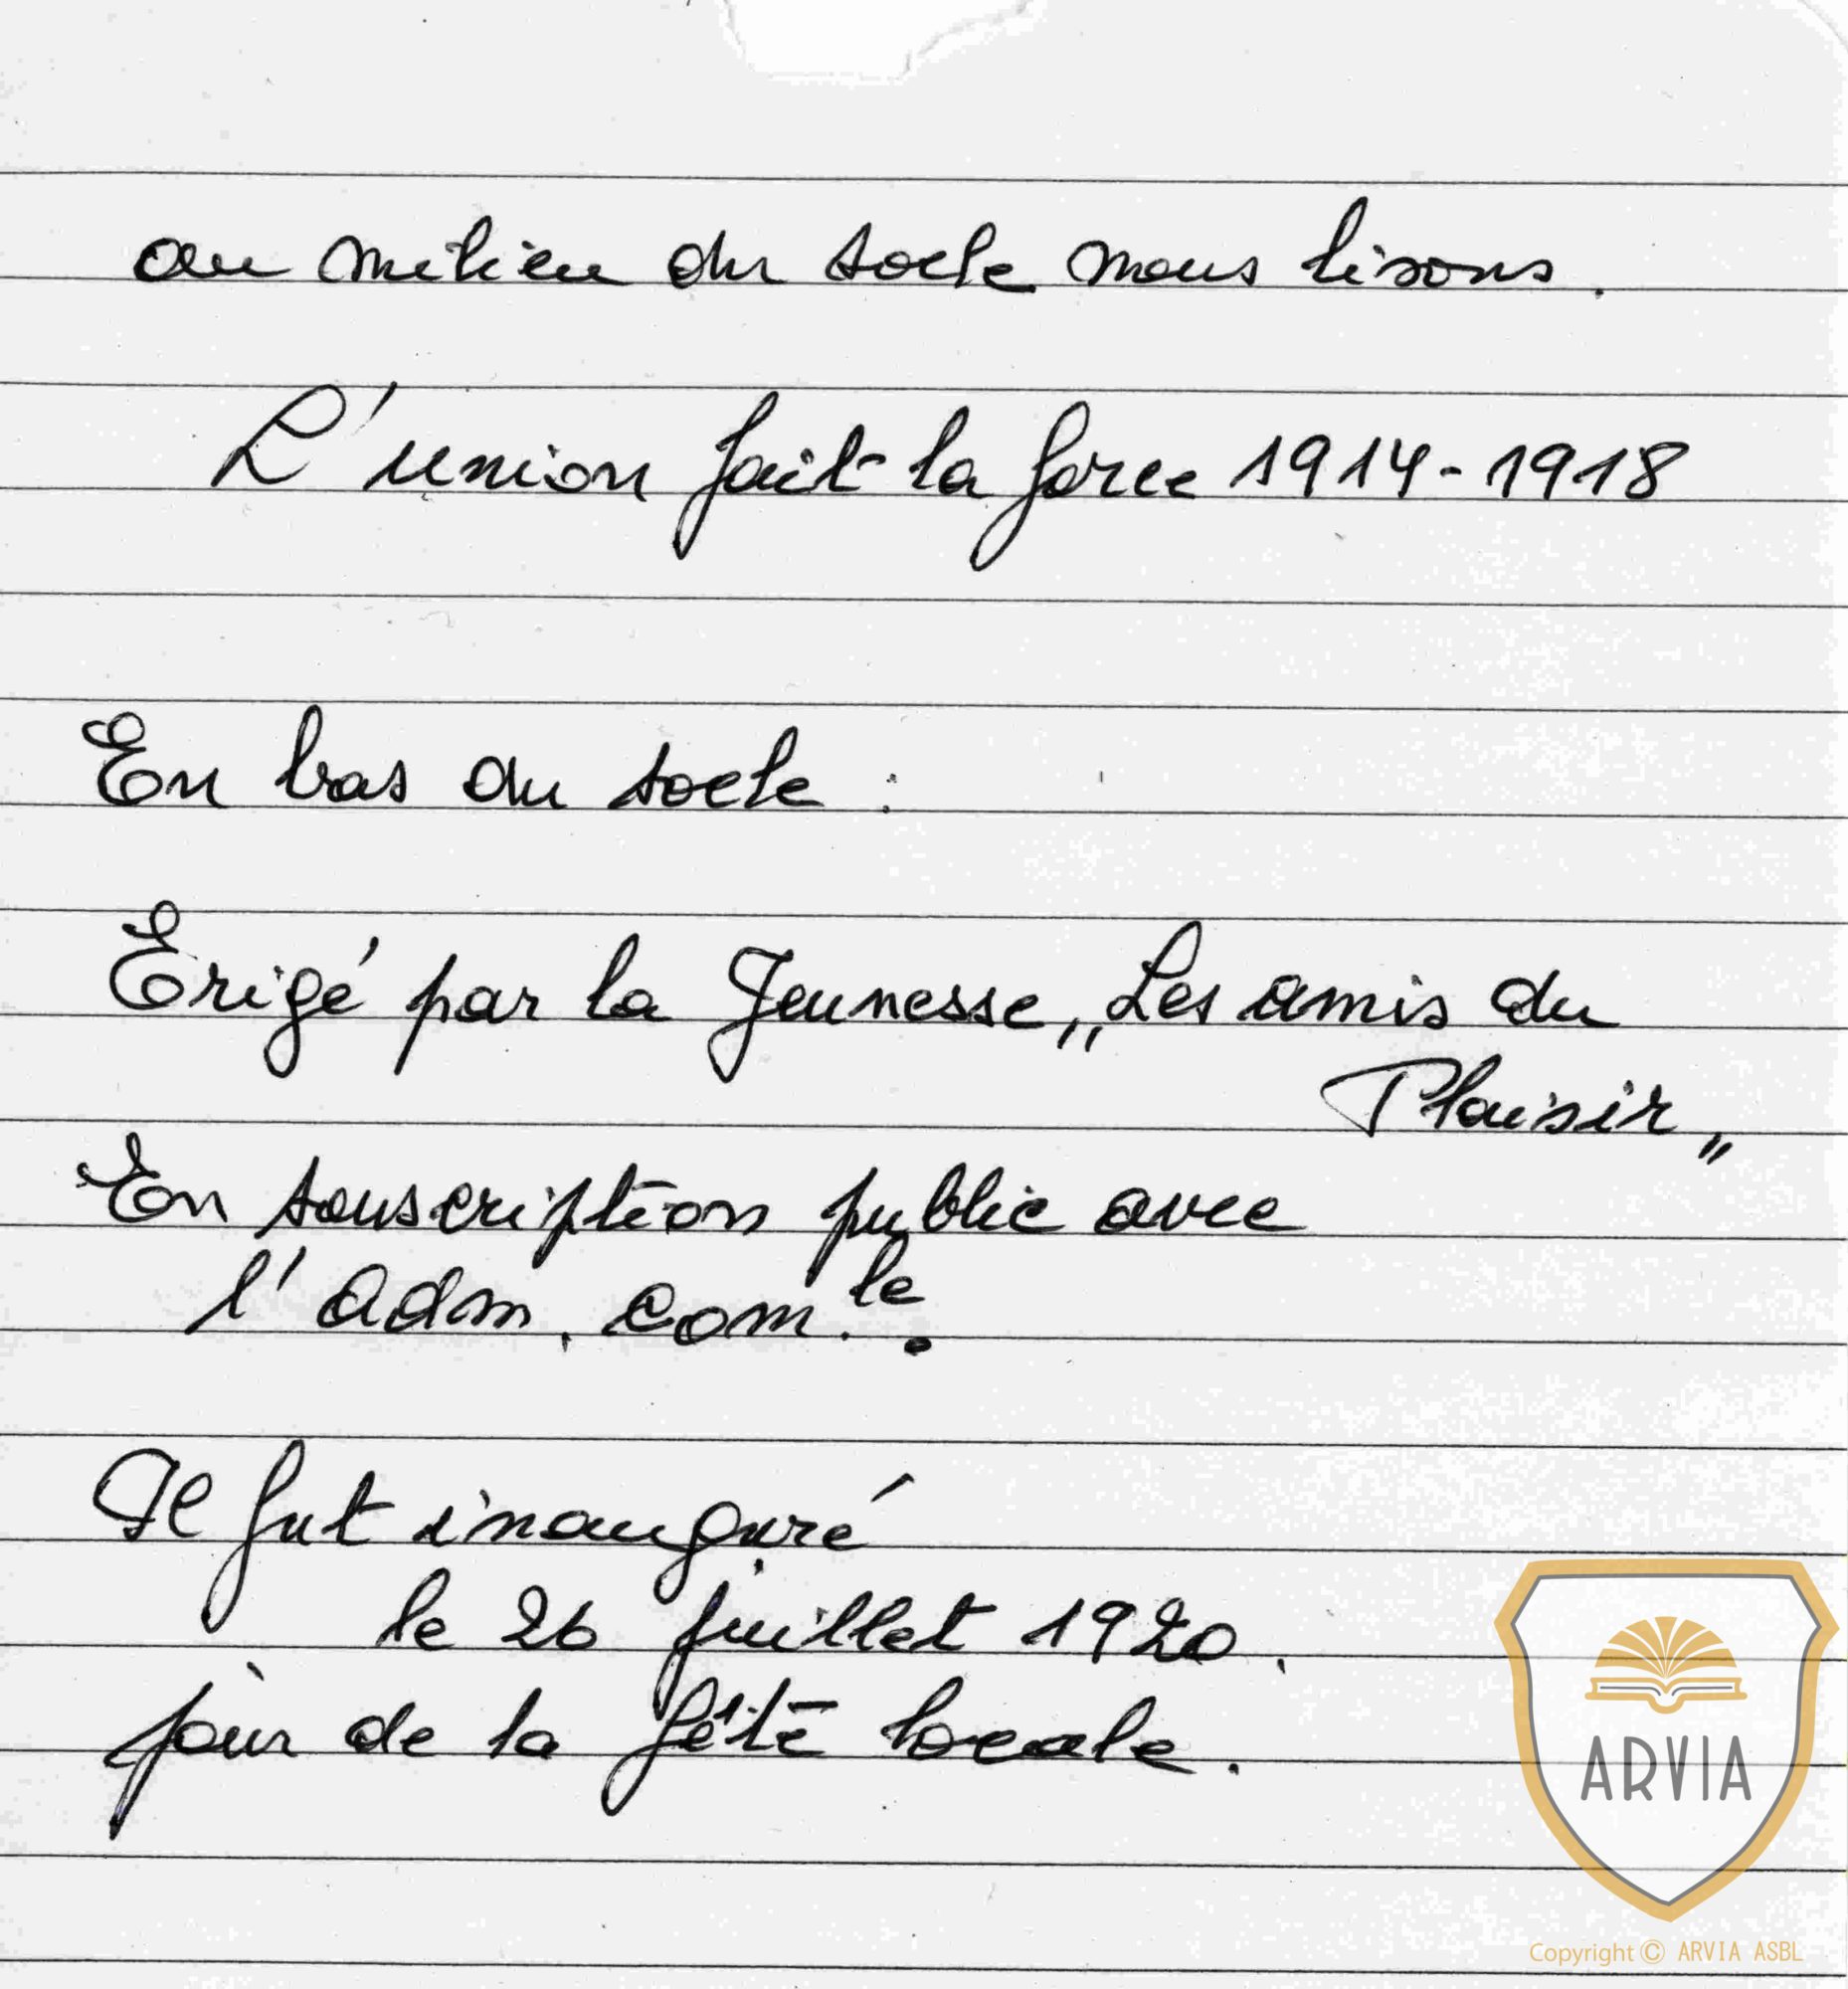 au milieu du socle nous lisons.
L'union fait la force 1914-1918
En bas du socle :
Erigé par la Jeunesse „Les amis du
Plaisir„
En souscription public avec
l'adm. com.le.
Il fut inauguré
le 26 juillet 1920.
jour de la fête locale.
ARVIA
Copyright © ARVIA ASBL